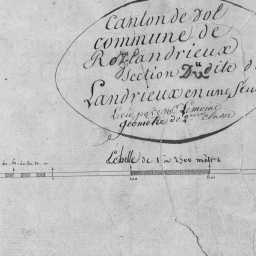 Canton de Dol
commune de
Roz Landrieux
Section D dite de
Landrieux en une feui
Levé par
géomètre de 2 classe
Echelle de 1 a 2500 mètres